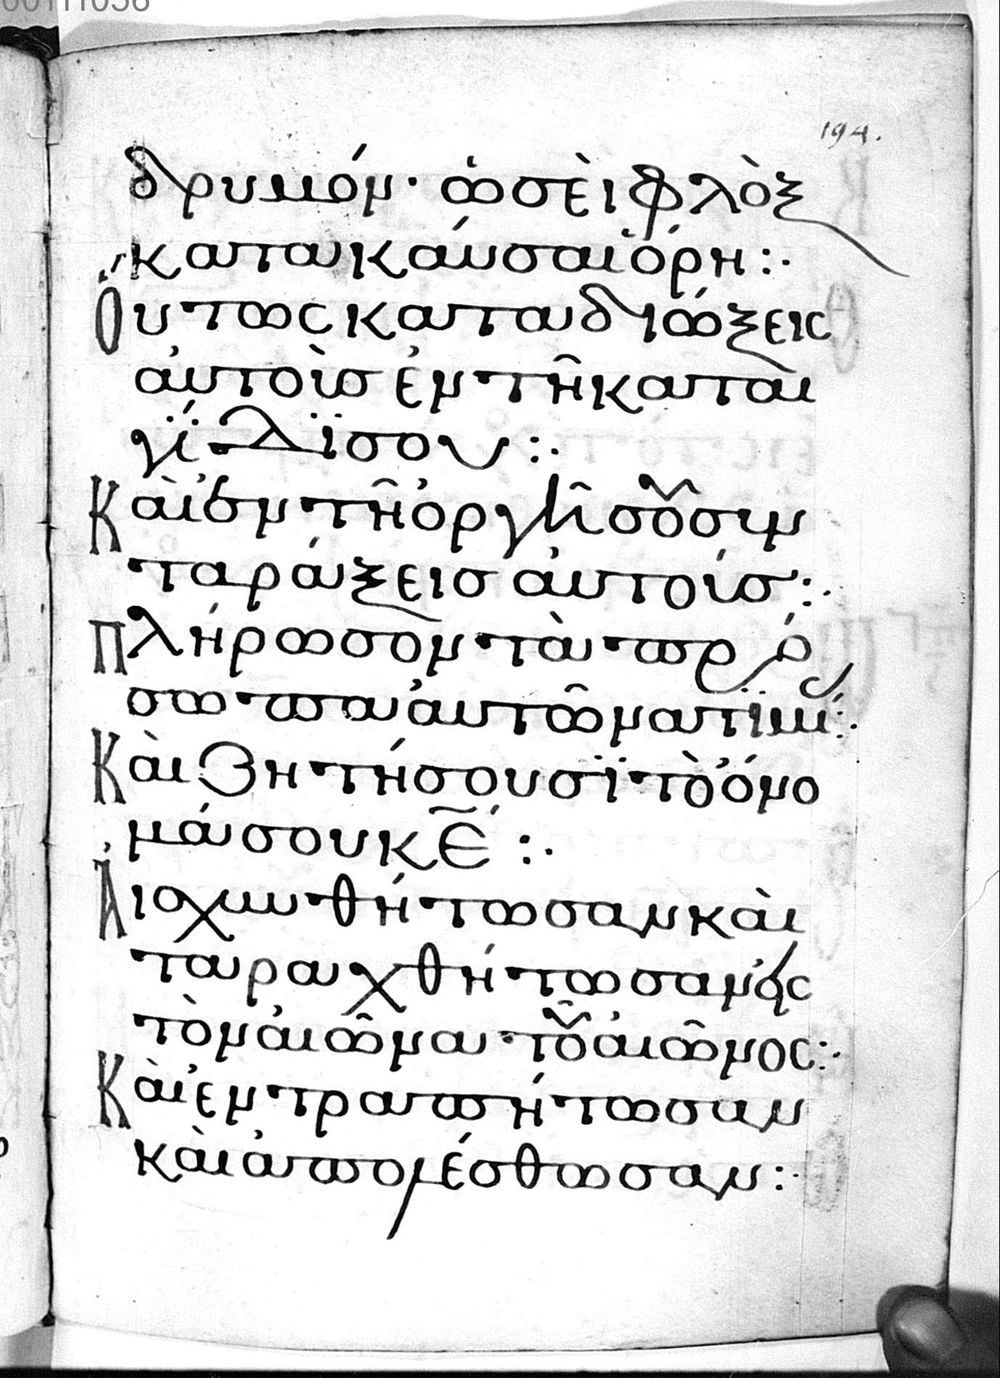 00111056
194.
δρυμόν· ὡσεὶ φλὸξ
κατακαύσαι ὄρη :·
Ούτως καταδιώξεις
ἀυτοὺσ ἐν τῆ καται
γί̈δί̈σου :·
Κὰι ἐν τῆ ὀργῆ σοῦ συν
ταράξεισ ἀυτούσ :·
Πλήρωσον τὰ πρό
σωπα ἀυτῶν ἀτιμί :·
Κὰι ζητήσουσϊ τὸ ὄνο
μά σου κε̄ :·
Αισχυνθήτωσαν κὰι
ταραχθήτωσαν ἐις
τὸν ἀιῶνα τοῦ ἀιῶνος :·
Κὰι ἐντραπήτωσαν
κὰι ἀπολέσθωσαν :·